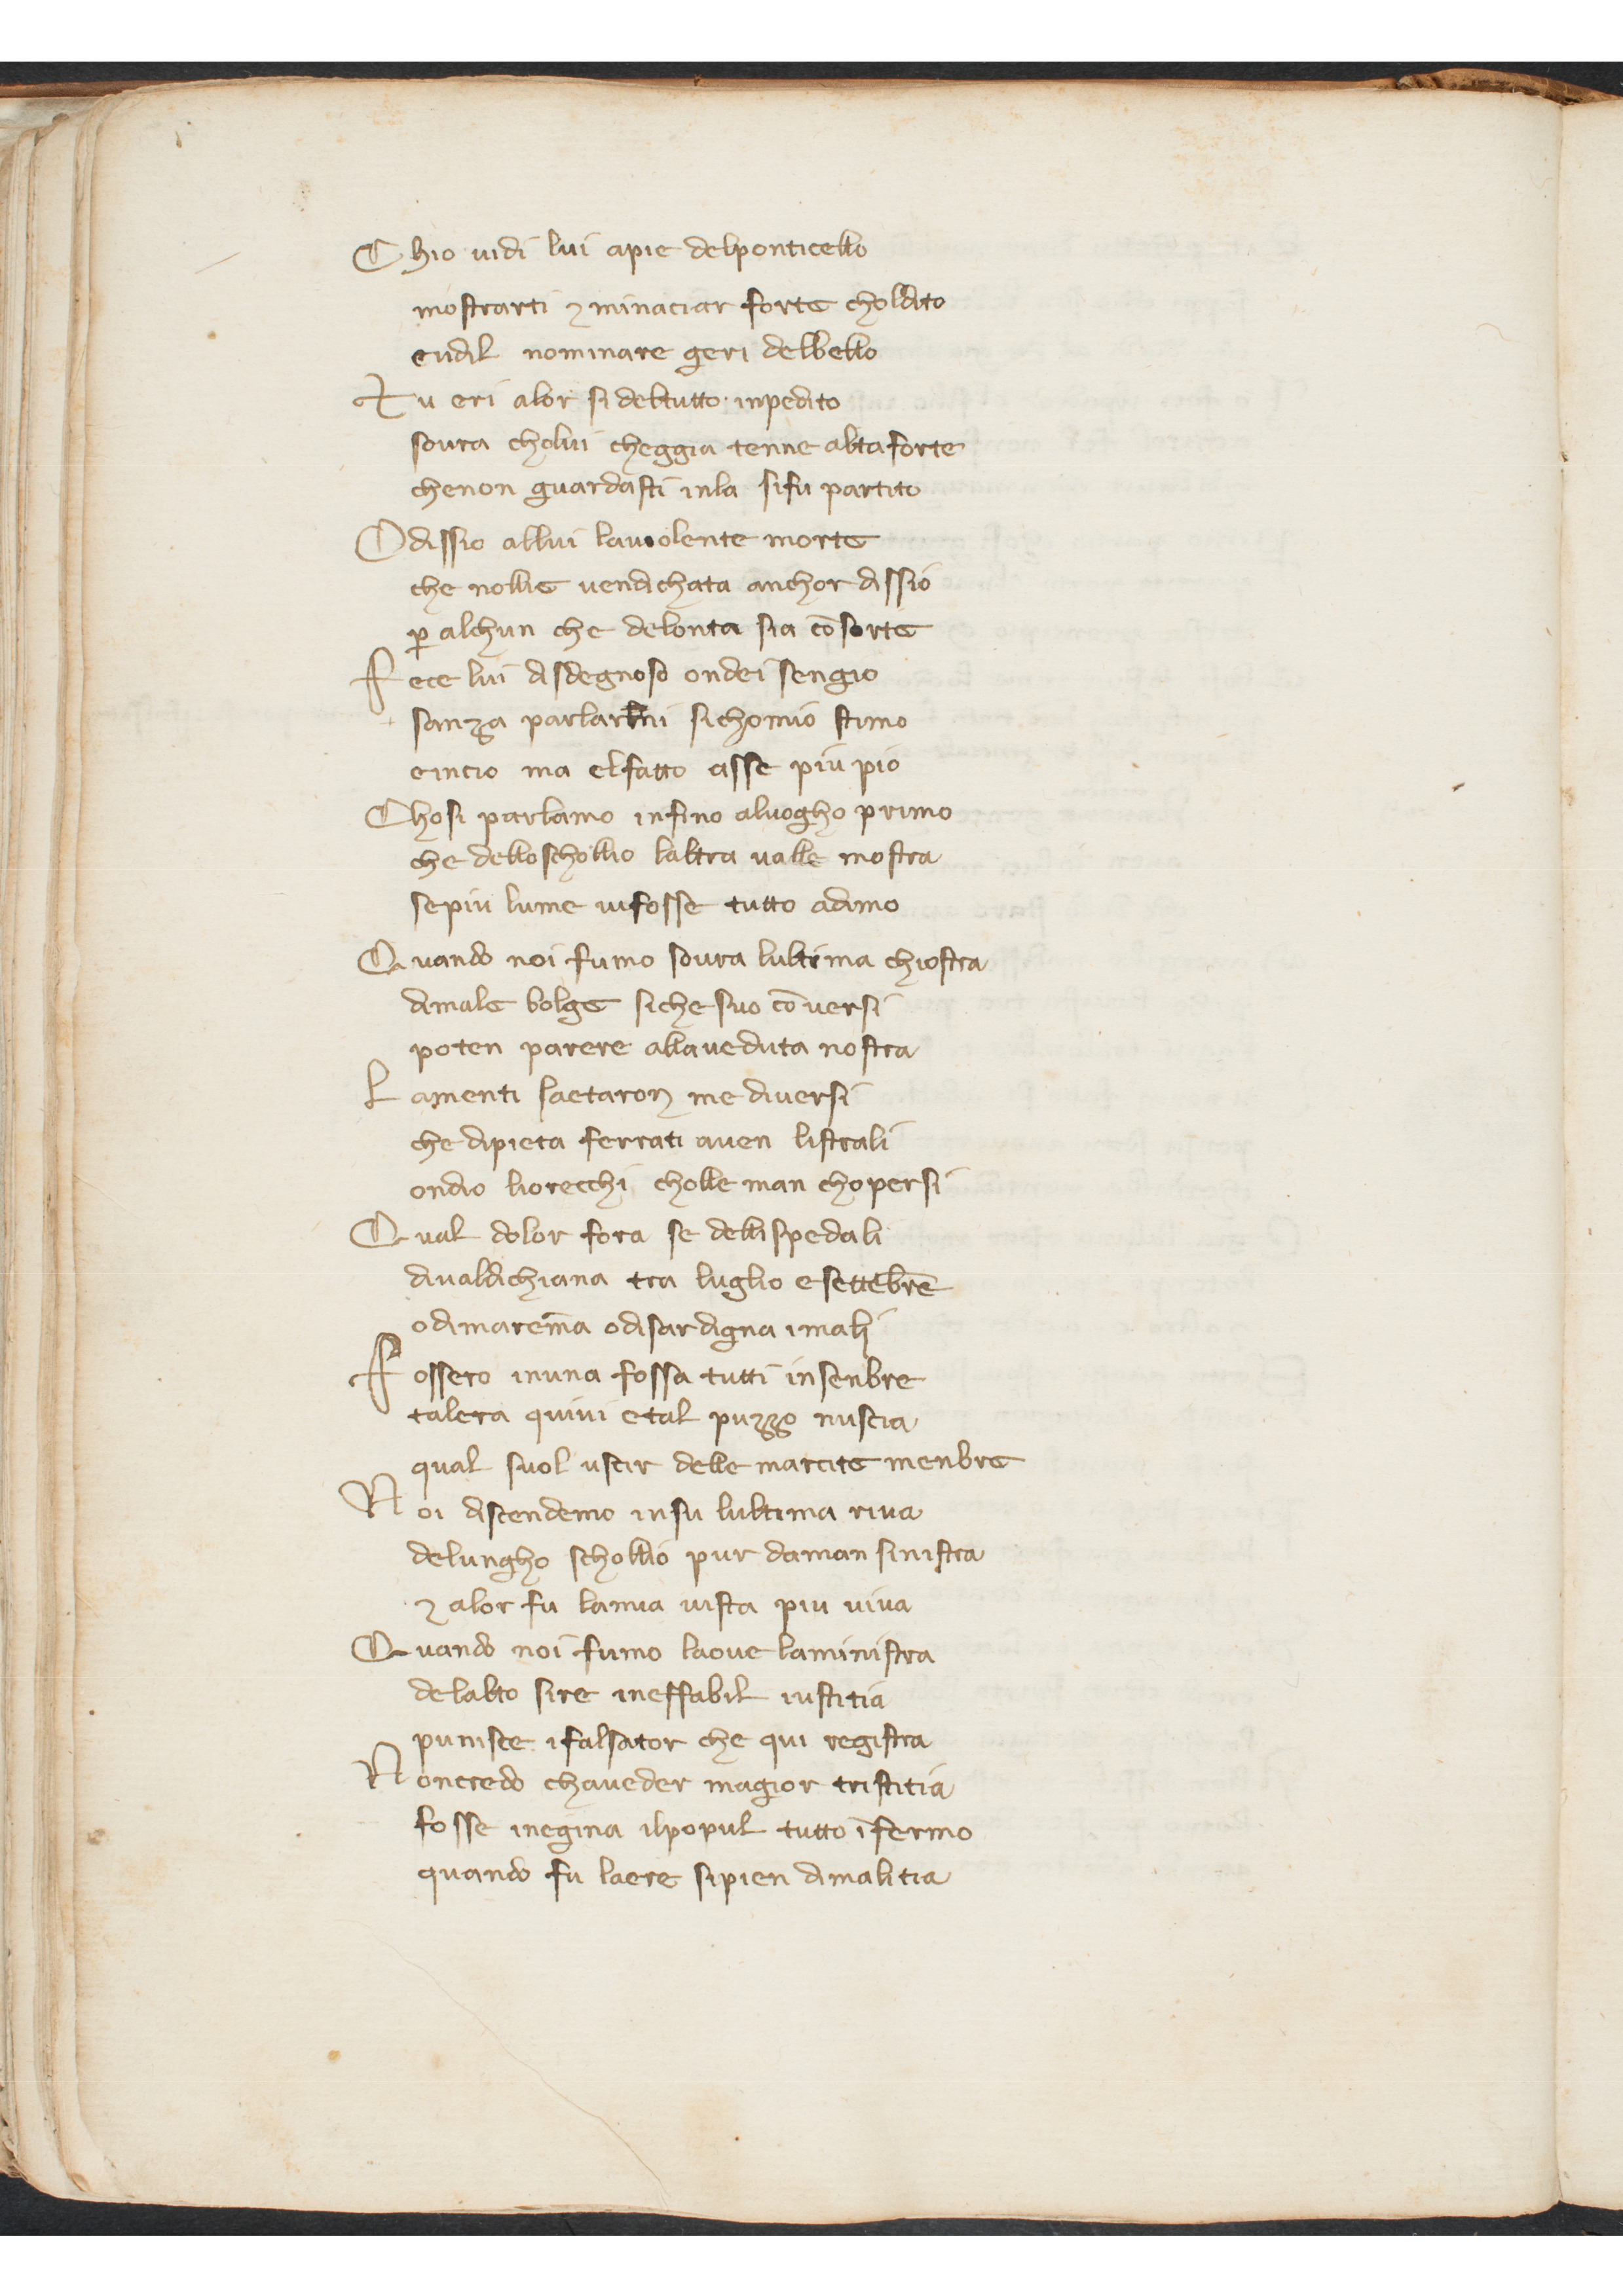 Chio vidi lui apie delponticello
mostrarti ⁊ minacciar forte choldito
eudil nominare geri delbello
Tu eri alor si deltutto inpedito
sovra cholui cheggia tenne altaforte
chenon guardasti inla sifu partito
Odissio allui lauiolente morte
che nollie vendichata anchor dissio
ꝑ alchun che delonta sia cōsorte
Fece lui disdegnoso ondei sengio
sanza parlarmi sichomio stimo
eincio ma elfatto asse piu pio
Chosi parlamo infino aluogho primo
che delloschollio laltra valle mostra
sepiu lume vifosse tutto adimo
Quando noi fumo sovra lultima chiostra
dimale bolge siche suo cōversi
poten parere allaveduta nostra
Lamenti saetaron me diversi
che dipieta ferrati aven listrali
ondio liorecchi cholle man chopersi
Qual dolor fora se dellispedali
divaldichiana tra luglio esettēbre
odimarem̄a odisardigna imali
Fossero inuna fossa tutti insenbre
talera quivi etal puzzo nuscia
qual suol uscir delle marcite menbre
Noi discendemo insu lultima riva
delungho schollio pur daman sinistra
⁊ alor fu lamia vista piu viva
Quando noi fumo laove laministra
delalto sire ineffabil iustitia
punisce ifalsator che qui registra
Noncredo chaveder magior tristitia
fosse inegina ilpopul tutto īfermo
quando fu laere sipien dimalitia